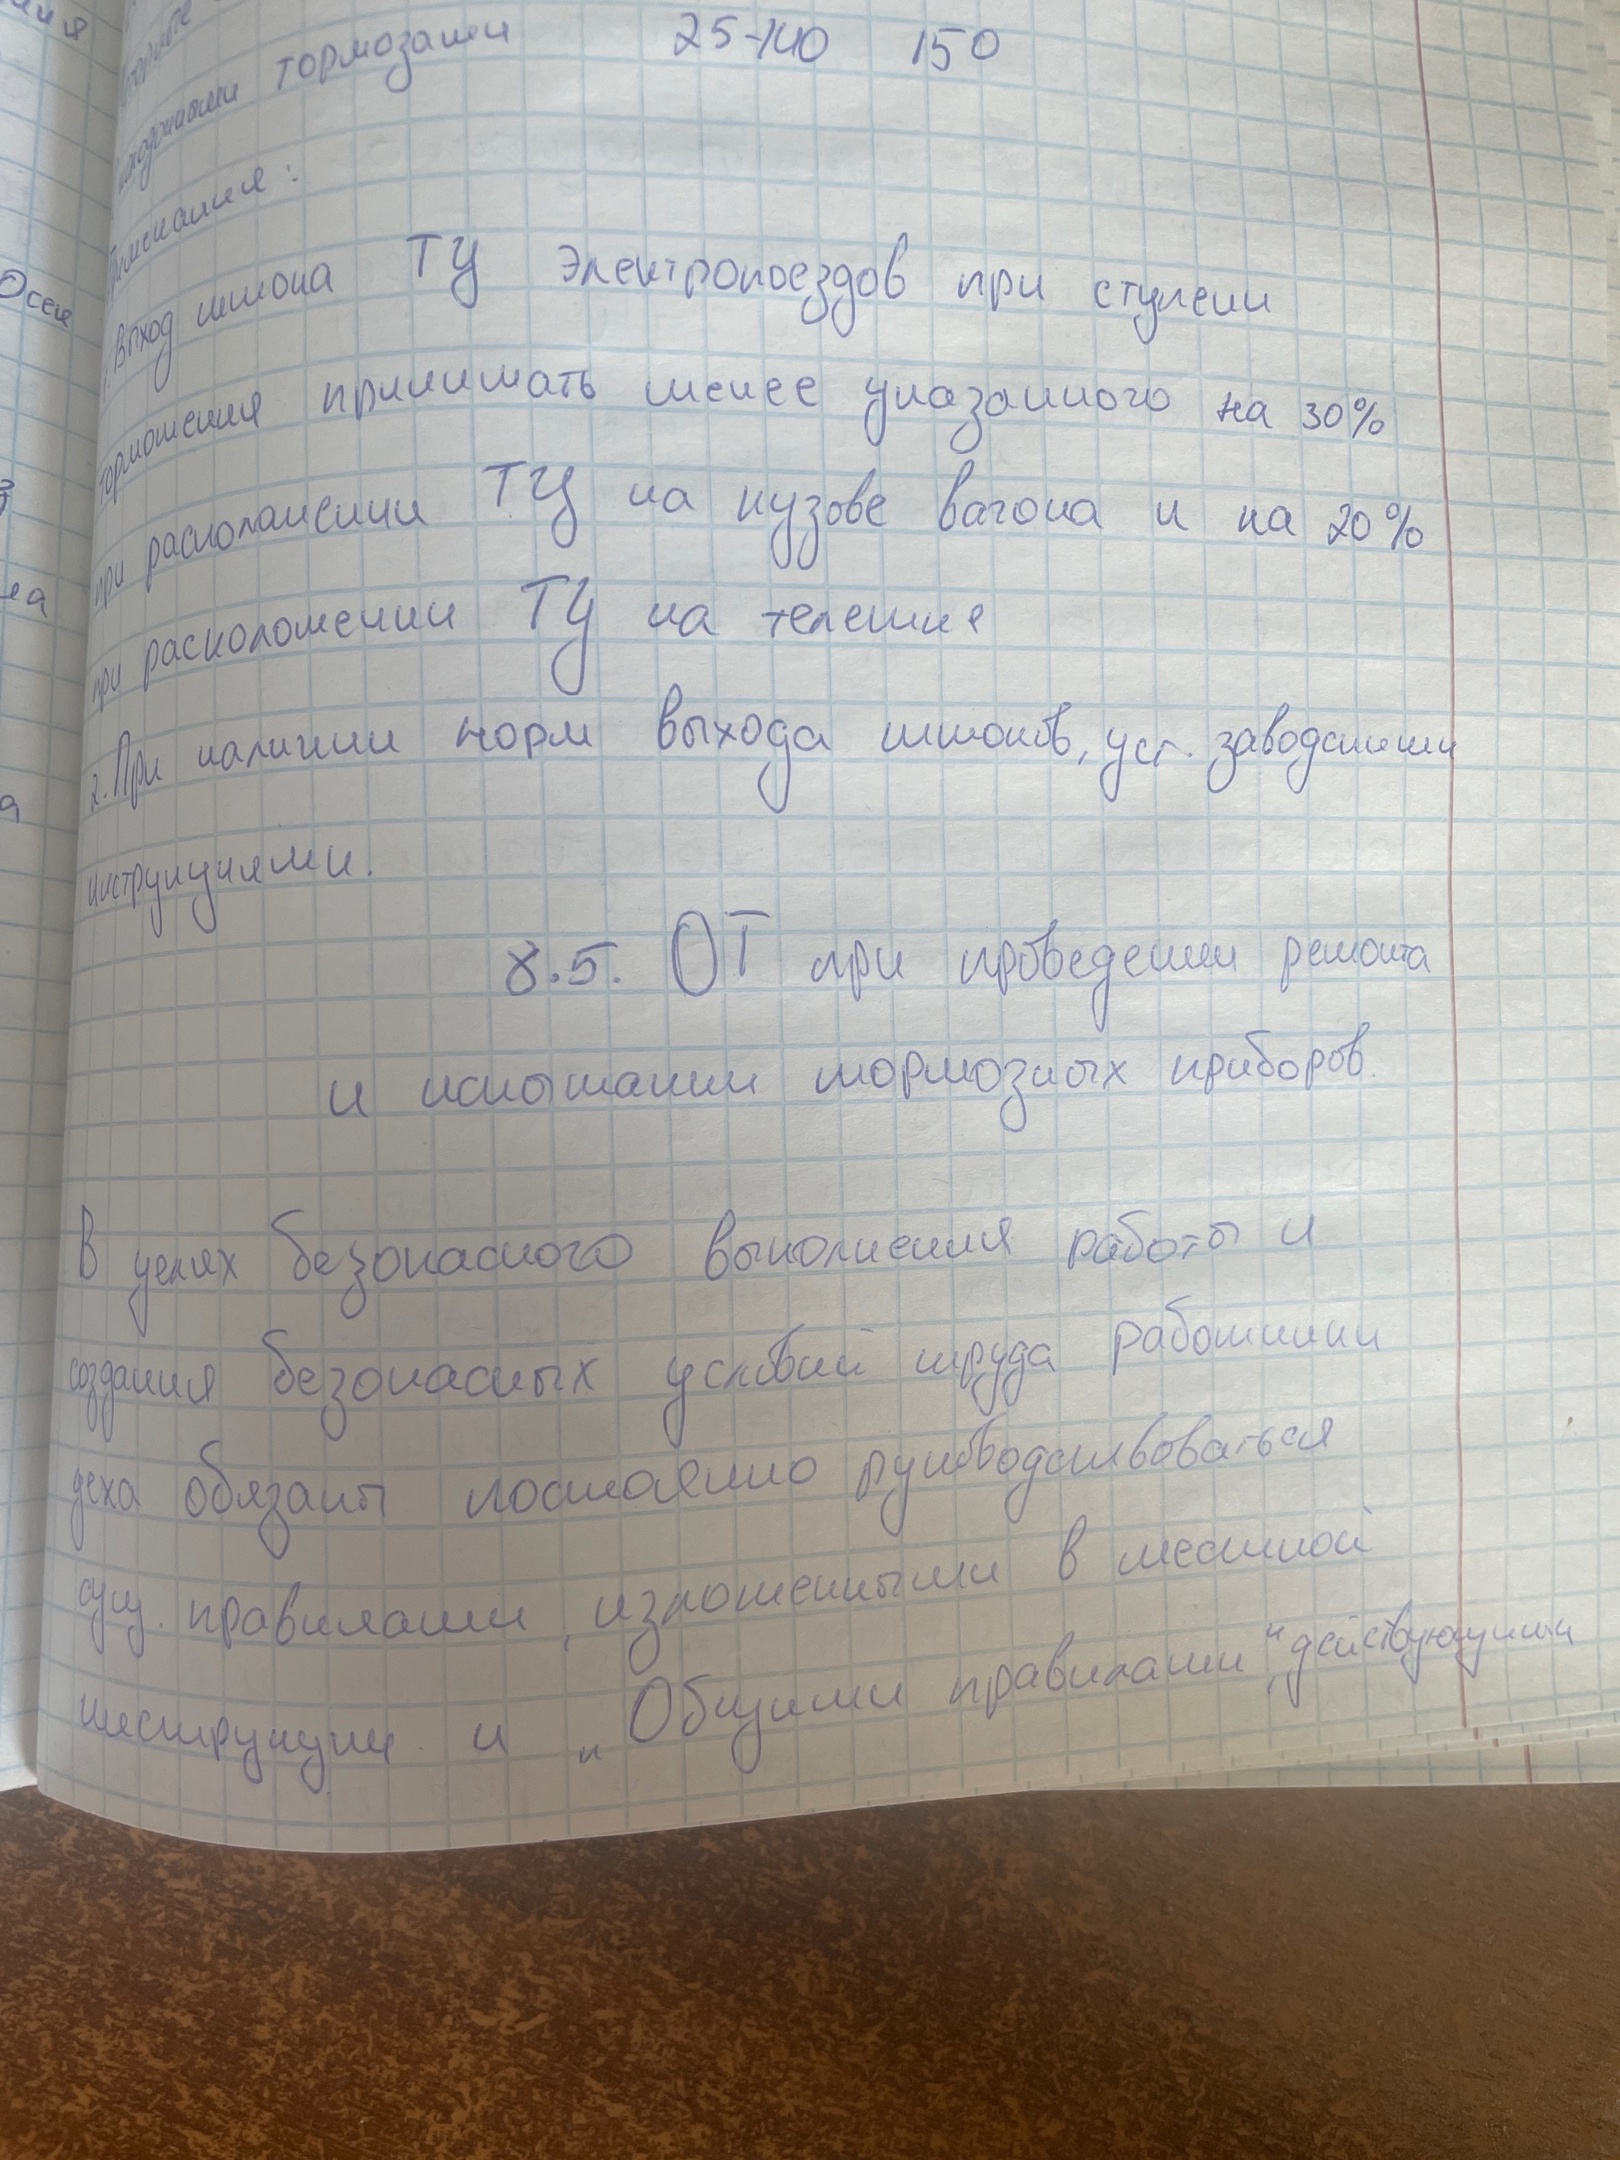 тормозами 25-140 150
Примечания:
1. Выход штока ТЦ электропоездов при ступени
торможения принимать менее указанного на 30%
при расположении ТЦ на кузове вагона и на 20%
при расположении ТЦ на тележке
2. При наличии норм выхода штоков, уст. заводскими
инструкциями.
8.5. ОТ при проведении ремонта
и испытании тормозных приборов.
В целях безопасного выполнения работы и
создания безопасных условий труда работники
цеха обязаны постоянно руководствоваться
сущ. правилами, изложенными в местной
инструкции и „Общими правилами", действующими